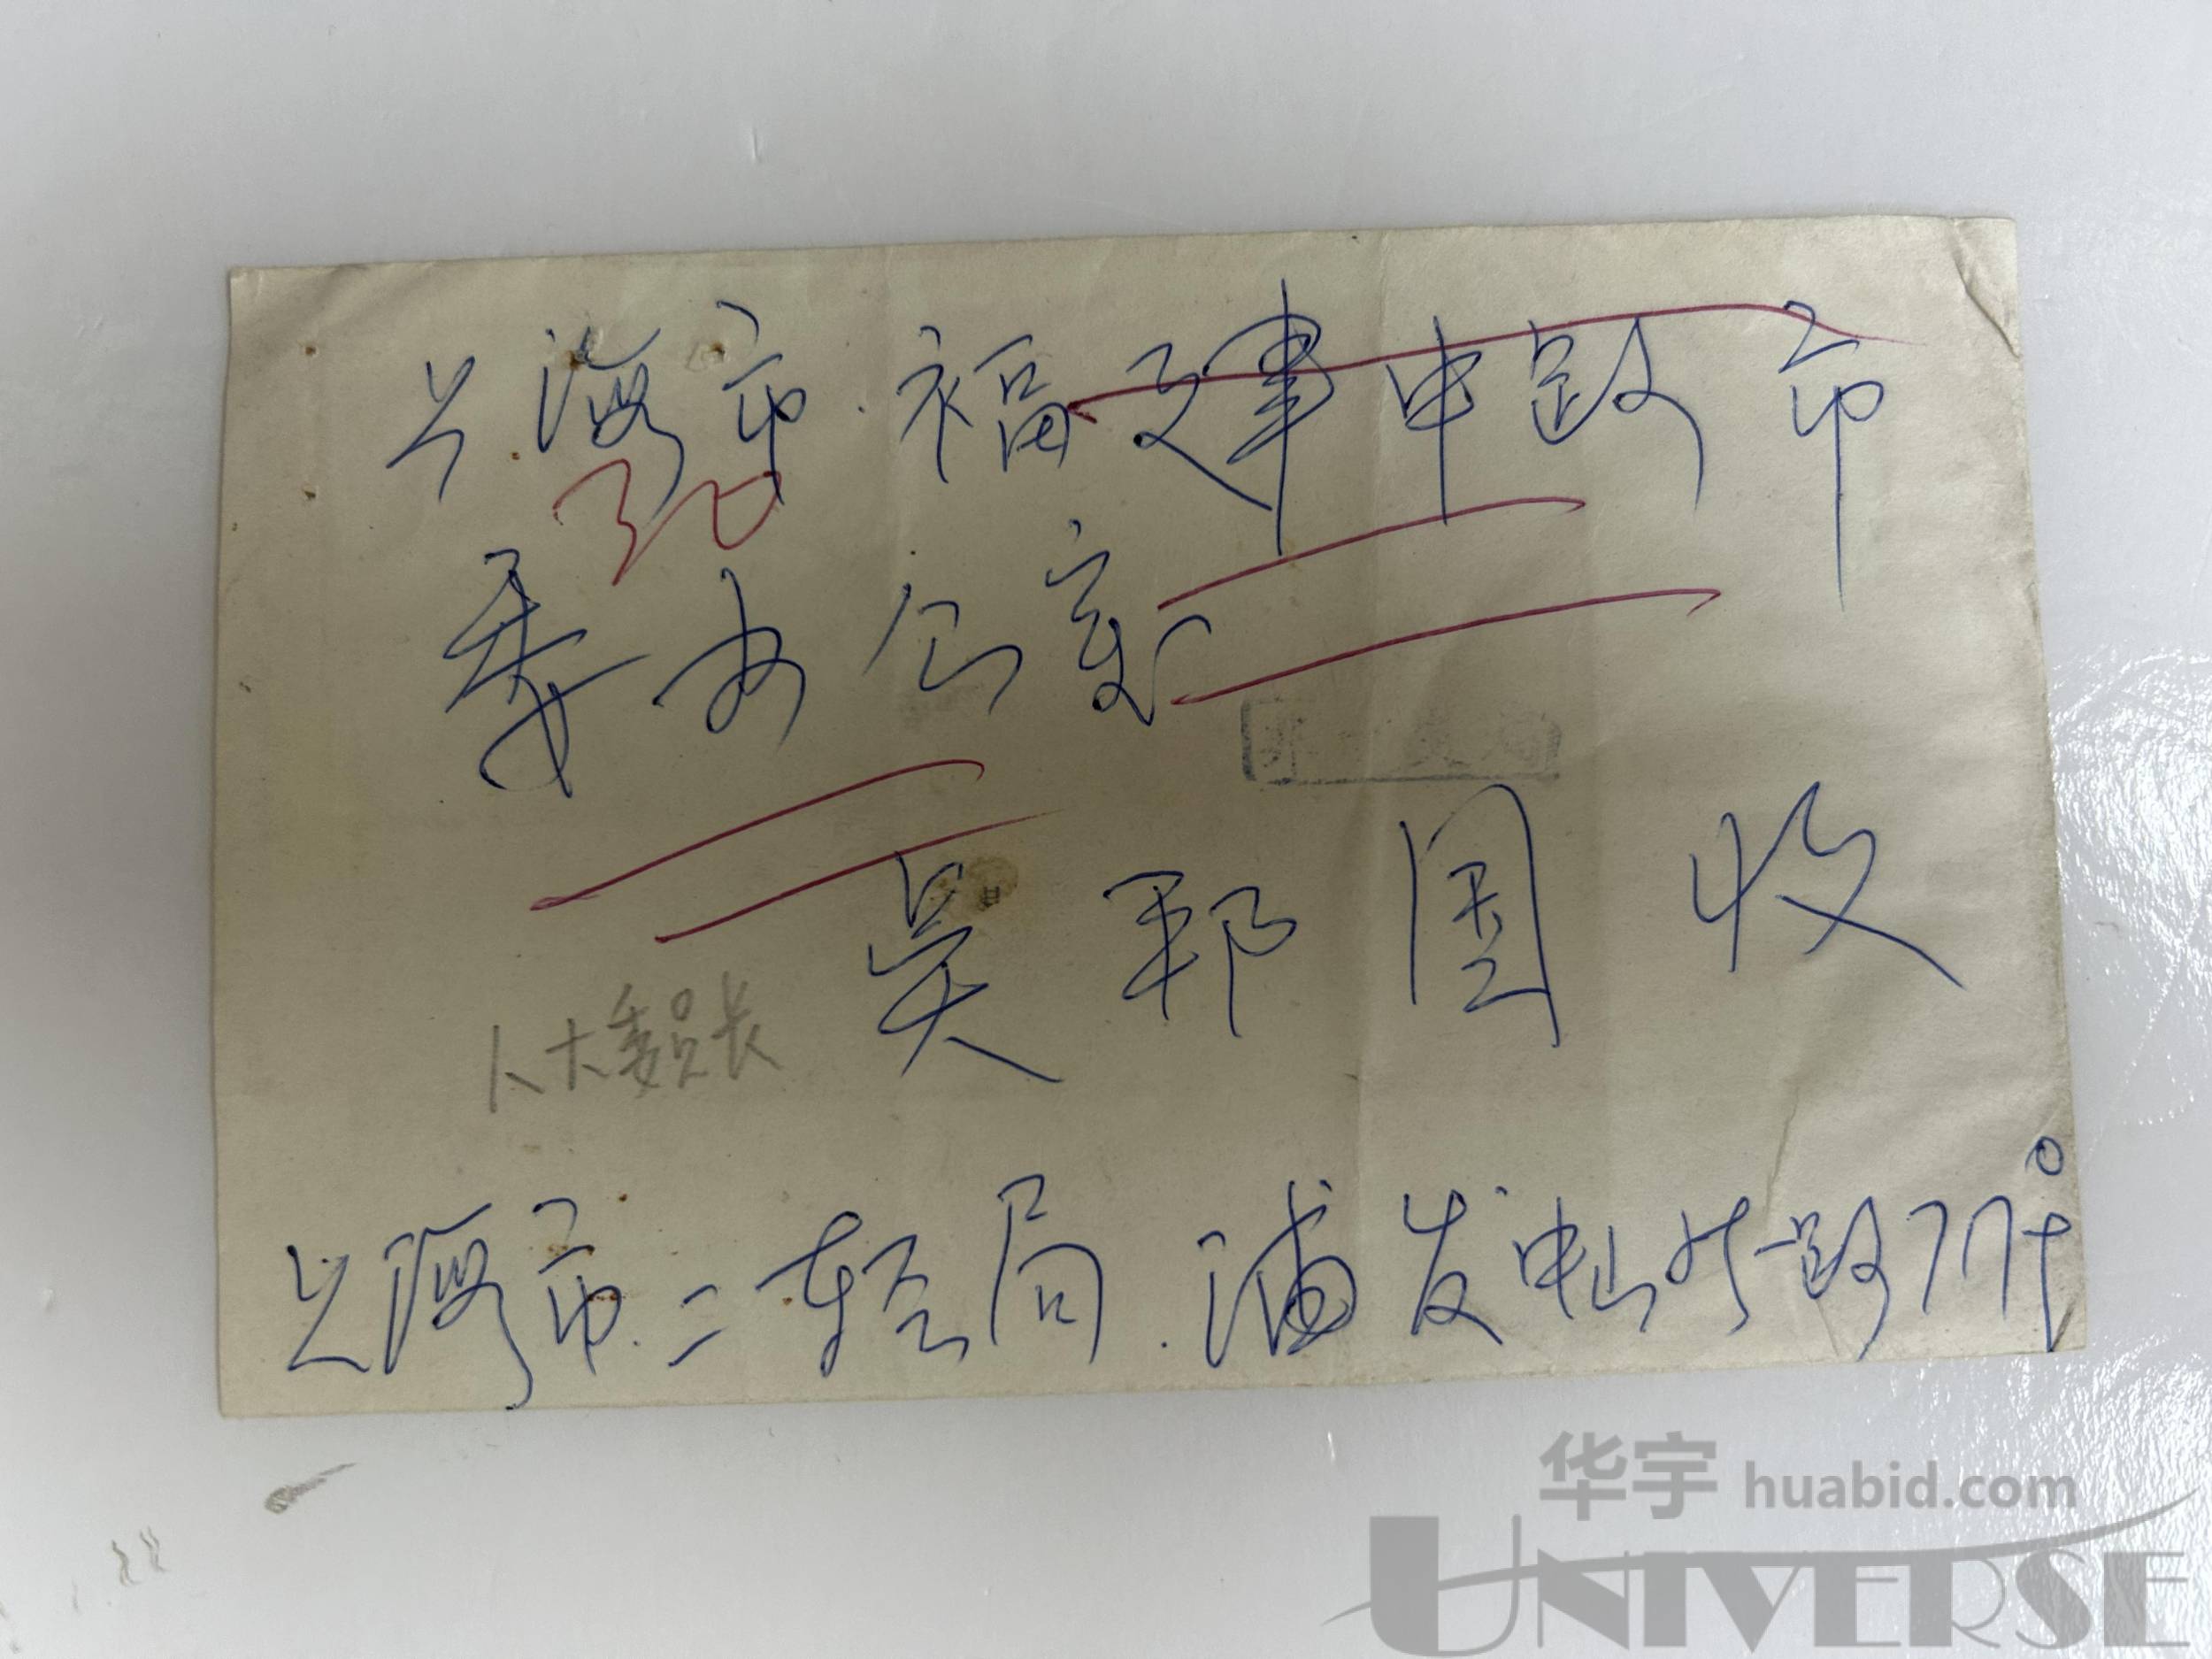 上海市.福建中路市
委办公室
吴邦国 收
人大委员长
上海市二轻局.浦发中山东一路
华宇 huabid.com
UNIVERSE